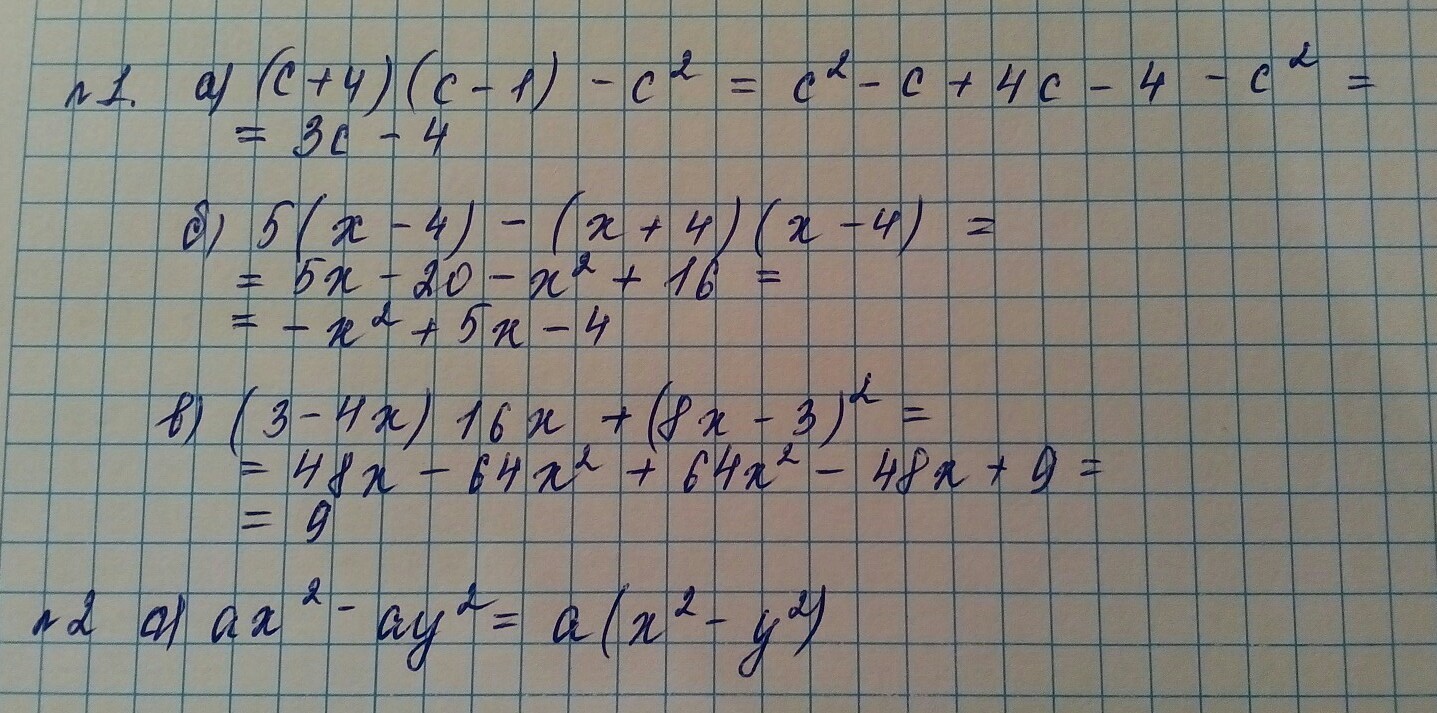 №1. а) (c+4)(c-1) - c² = c² - c + 4c - 4 - c² =
= 3c - 4
б) 5(x-4) - (x+4)(x-4) =
= 5x - 20 - x² + 16 =
= -x² + 5x - 4
в) (3-4x) 16x + (8x-3)² =
= 48x - 64x² + 64x² - 48x + 9 =
= 9
№2 а) ax² - ay² = a(x² - y²)